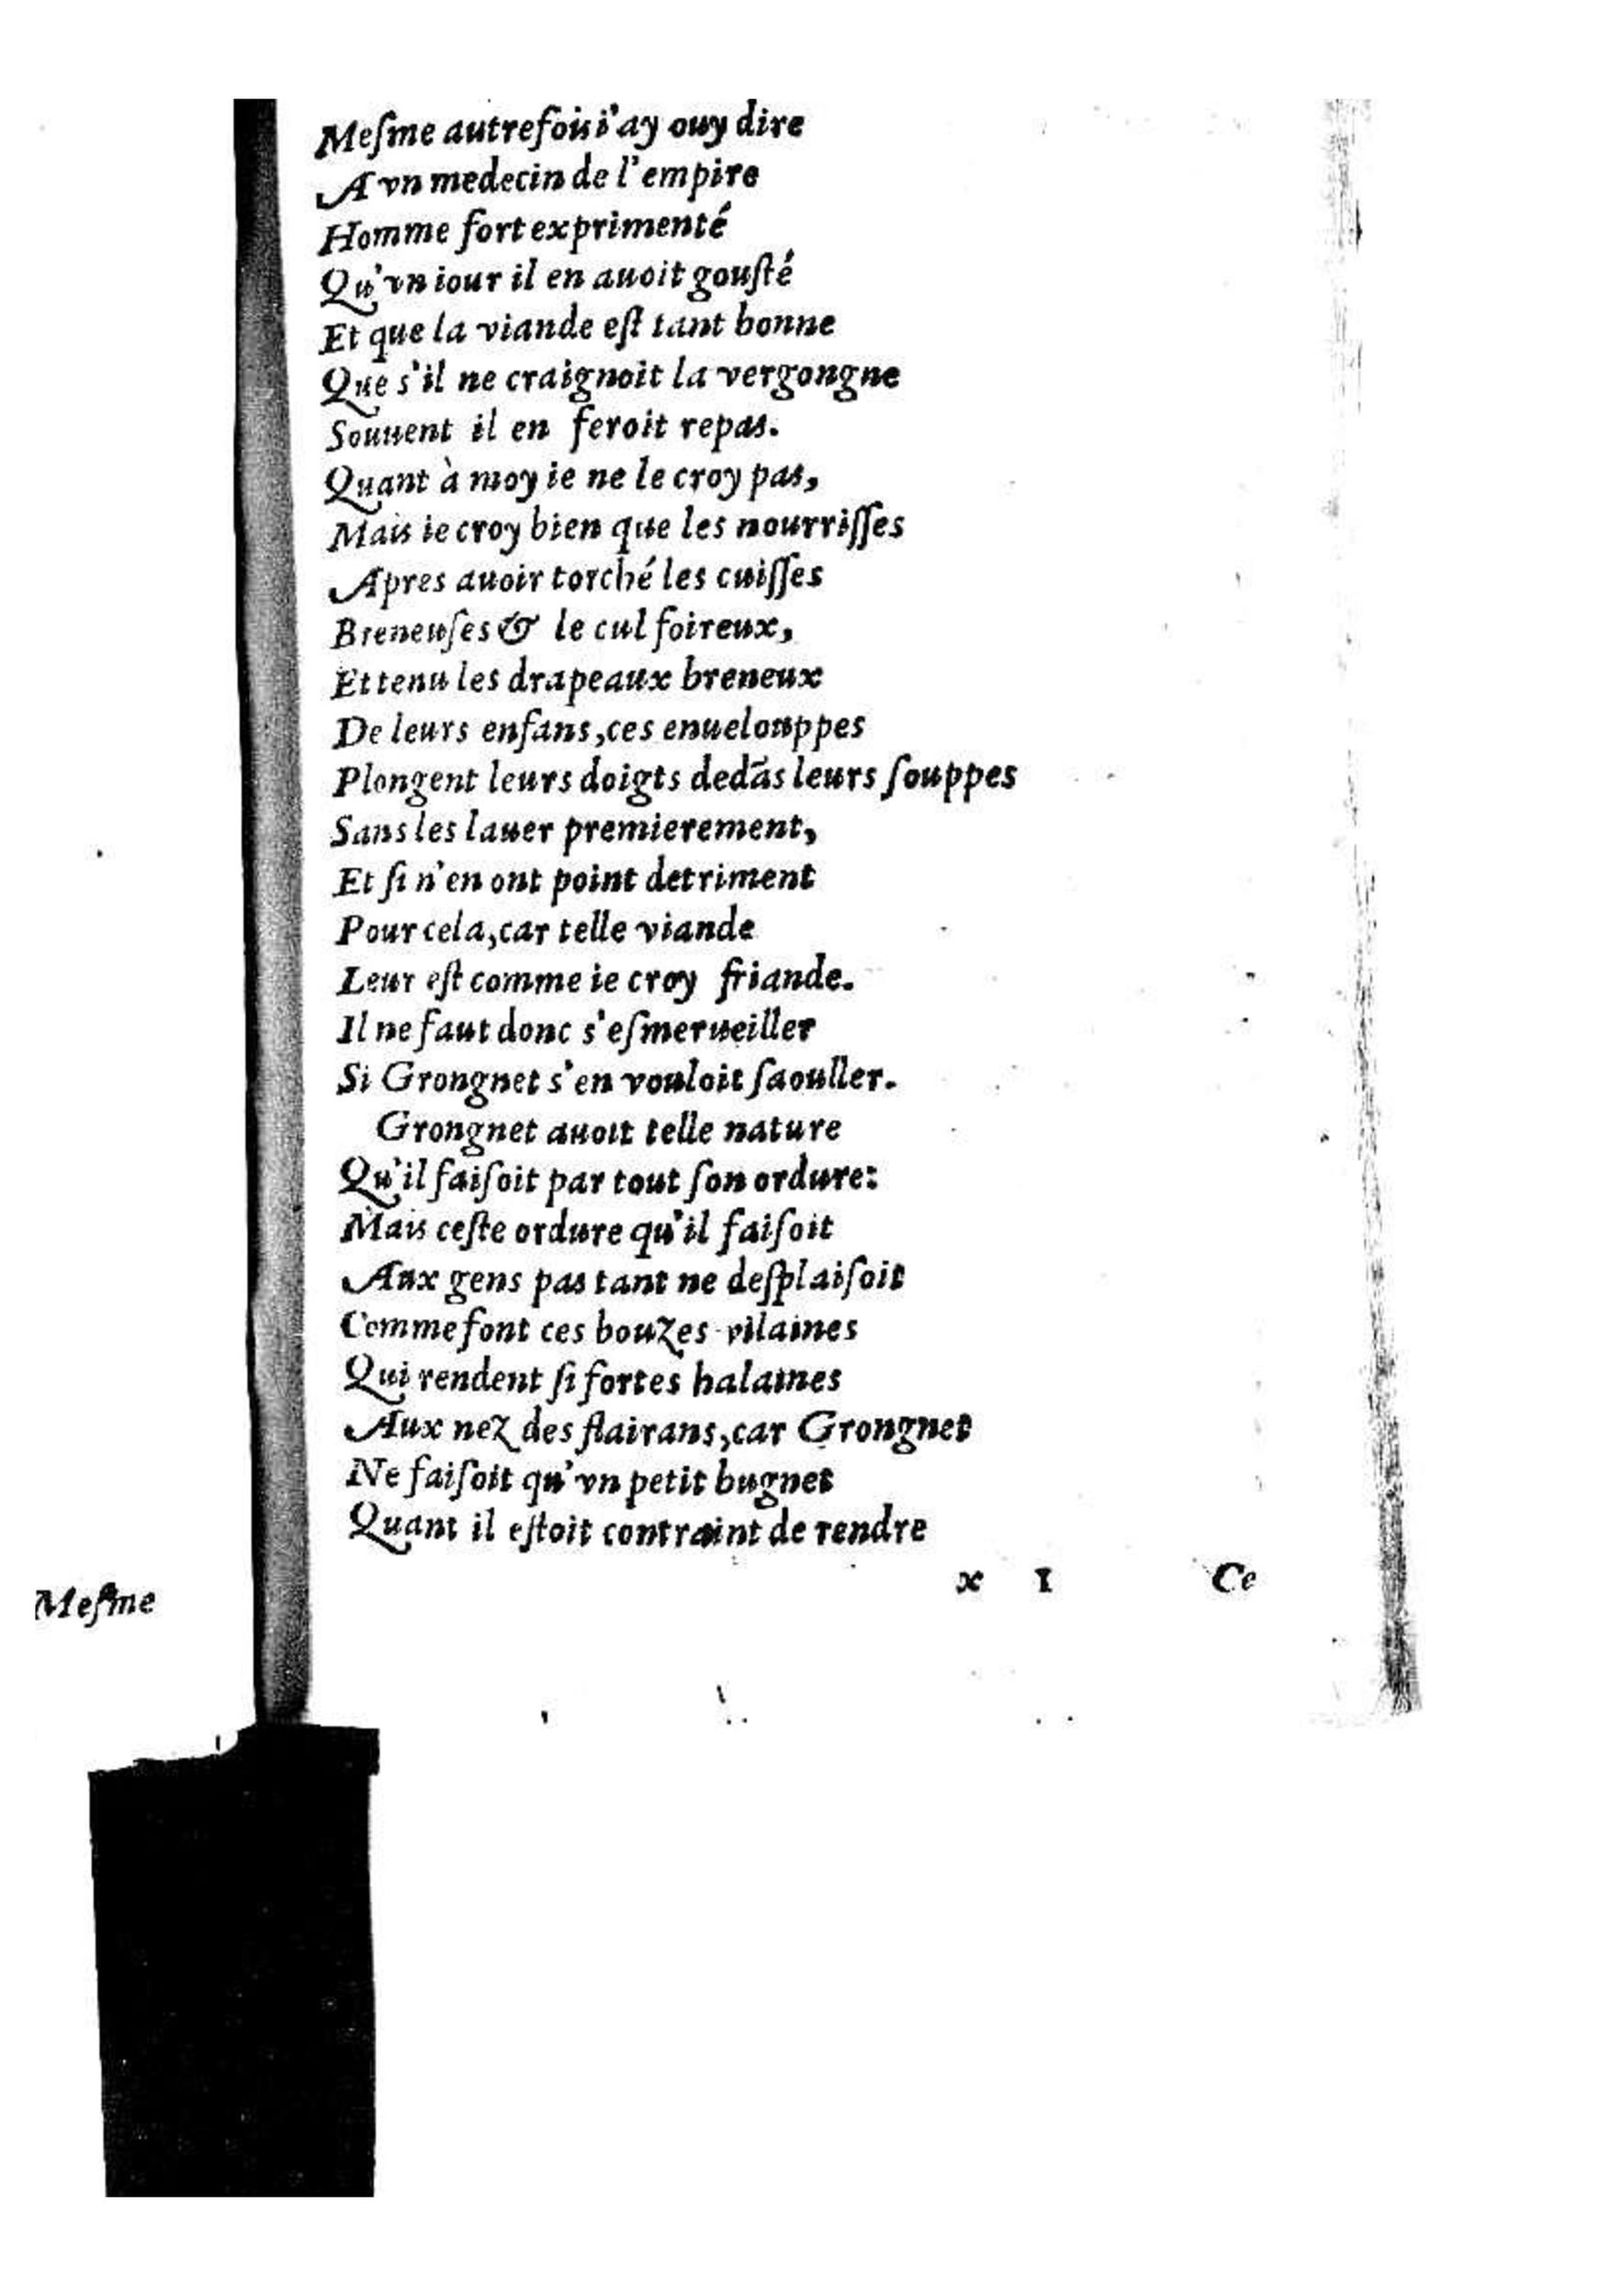 Meſme autrefois i'ay ouy dire
A vn medecin de l'empire
Homme fort exprimenté
Qu'vn iour il en auoit gouſté
Et que la viande eſt tant bonne
Que s'il ne craignoit la vergongne
Souuent il en feroit repas.
Quant à moy ie ne le croy pas,
Mais ie croy bien que les nourriſſes
Apres auoir torché les cuiſſes
Breneuſes & le cul foireux,
Et tenu les drapeaux breneux
De leurs enfans, ces enuelouppes
Plongent leurs doigts dedãs leurs ſouppes
Sans les lauer premierement,
Et ſi n'en ont point detriment
Pour cela, car telle viande
Leur eſt comme ie croy friande.
Il ne faut donc s'eſmerueiller
Si Grongnet s'en vouloit ſaouller.
Grongnet auoit telle nature
Qu'il faiſoit par tout ſon ordure:
Mais ceſte ordure qu'il faiſoit
Aux gens pas tant ne deſplaiſoit
Comme font ces bouzes vilaines
Qui rendent ſi fortes halaines
Aux nez des flairans, car Grongnet
Ne faiſoit qu'vn petit bugnet
Quant il eſtoit contraint de rendre
x 1 Ce
Meſme